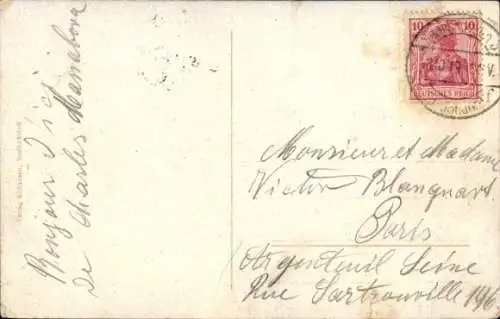 Bonjour d'ici
de Charles
10 10
DEUTSCHES REICH
Monsieur et Madame
Victor Blanquart
Paris
Argenteuil Seine
Rue Sartrouville 146